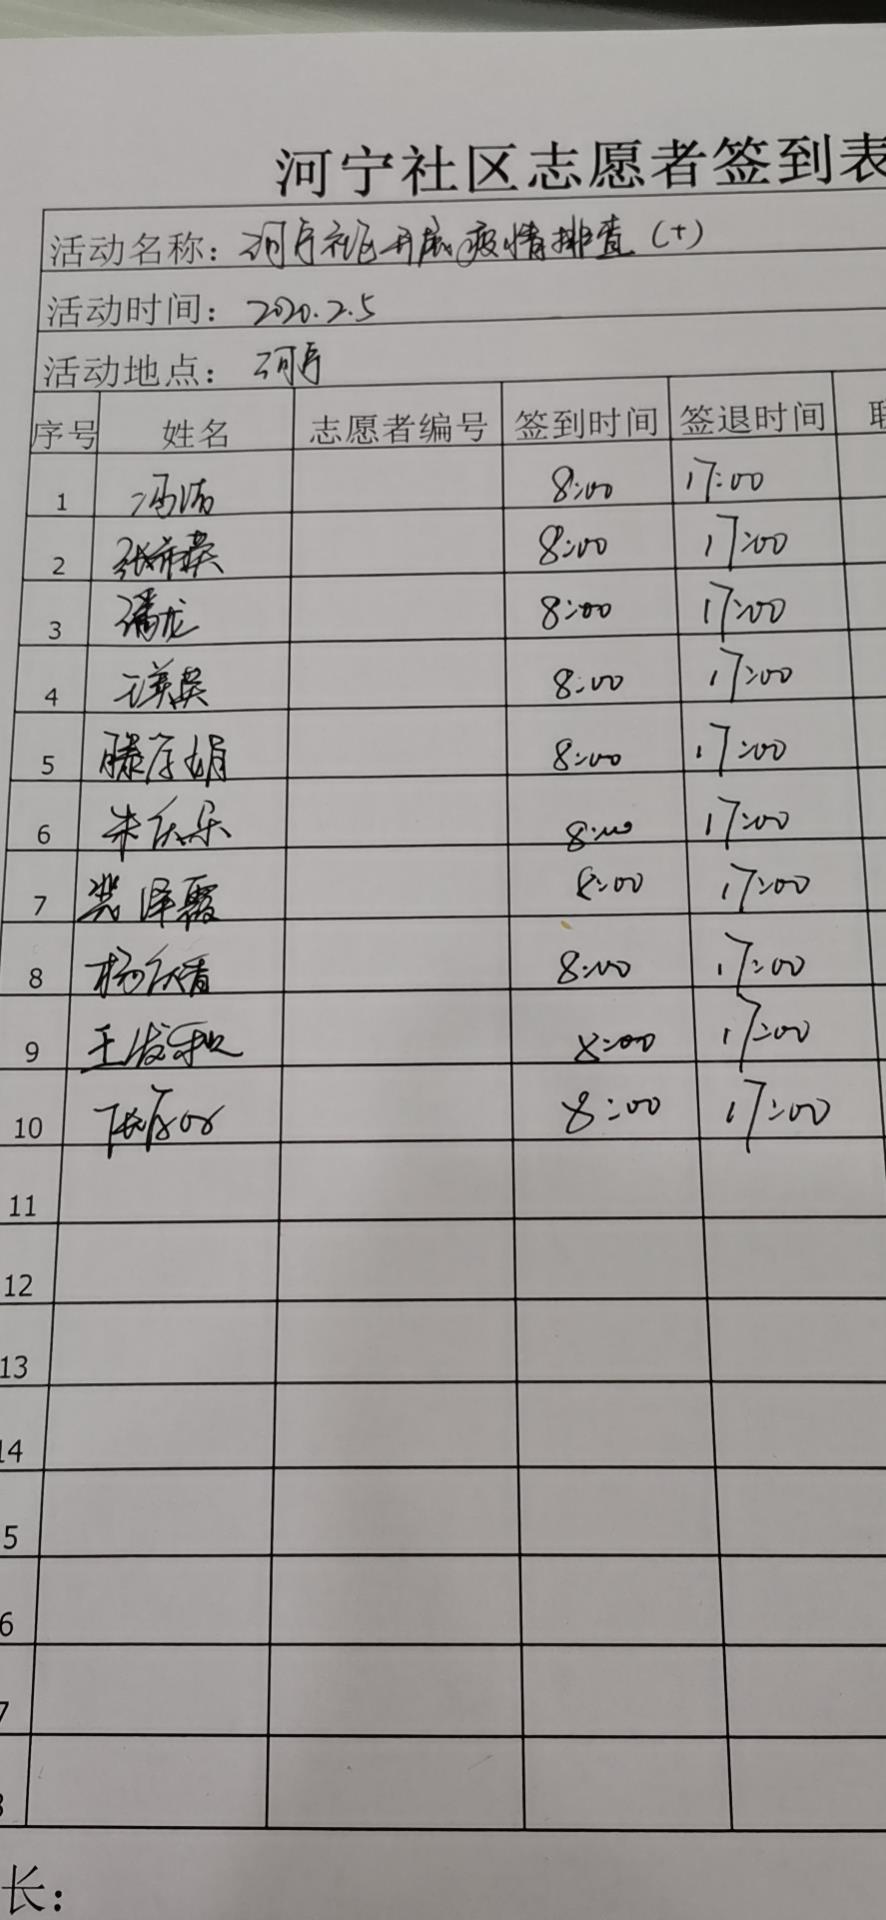 河宁社区志愿者签到表
活动名称：河宁社区开展疫情排查（十）
活动时间：2020.2.5
活动地点：河宁
序号 姓名 志愿者编号 签到时间 签退时间 联
1 冯洁 8:00 17:00
2 8:00 17:00
3 潘龙 8:00 17:00
4 8:00 17:00
5 滕 娟 8:00 17:00
6 朱庆乐 8:00 17:00
7 泽霞 8:00 17:00
8 杨欣倩 8:00 17:00
9 王 8:00 17:00
10 8:00 17:00
11
12
13
14
5
6
7
8
长：